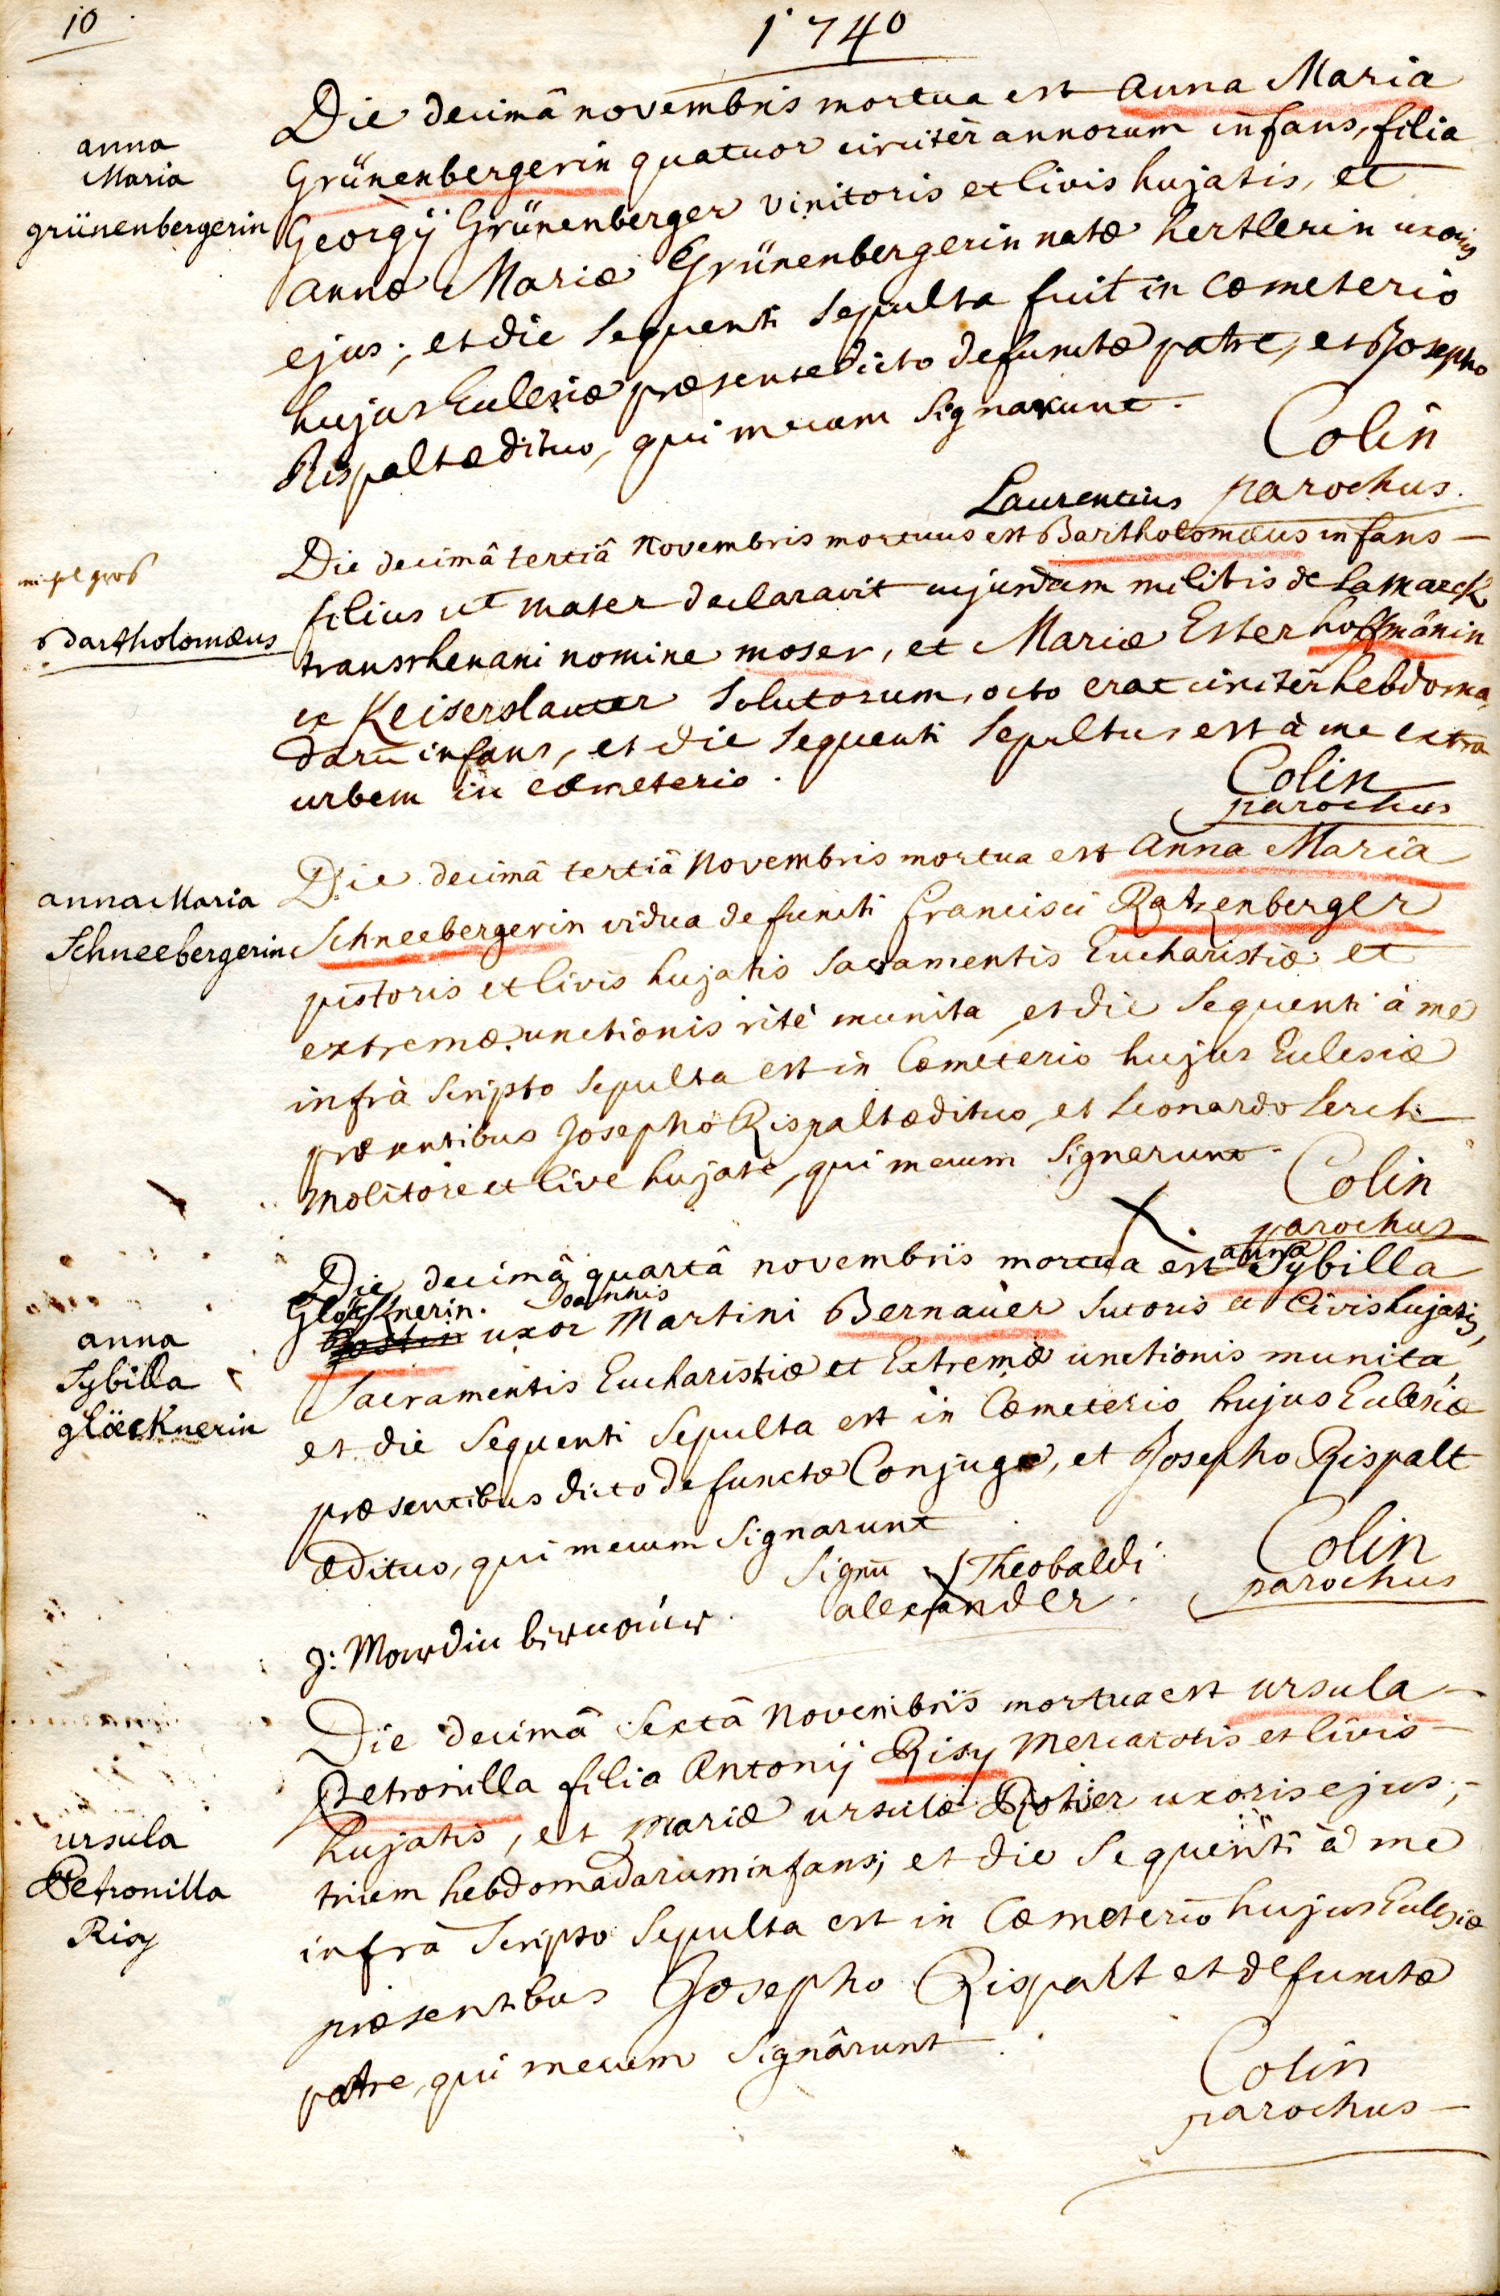 10
1740
anna
Maria
grünenbergerin
Die decimâ novembris mortua est anna Maria
Grünenbergerin quatuor circiter annorum infans, filia
Georgÿ Grünenberger vinitoris et Civis hujatis, et
annæ Mariæ Grünenbergerin natæ hertlerin uxoris
ejus; et die sequenti sepulta fuit in cœmeterio
hujus Ecclesiæ præsente dicto defunctæ patre, et Josepho
Rispalt ædituo, qui mecum signarunt.
Colin
parochus.
Bartholomæus
Laurentius
Die decimâ tertiâ Novembris mortuus est Bartholomæus infans
filius ut mater declaravit cujusdam militis de Lamarck
transrhenani nomine moser, et Mariæ Ester hoffmänin
ex Keiserslauter solutorum, octo erat circiter hebdoma
darũ infans, et die sequenti sepultus est à me extra
urbem in cœmeterio.
Colin
parochus
anna Maria
Schneebergerin
Die decimâ tertiâ Novembris mortua est anna Maria
Schneebergerin vidua defuncti francisci Ratzenberger
pistoris et Civis hujatis sacramentis Eucharistiæ et
extremæ unctionis ritè munita, et die sequenti à me
infrà scripto sepulta est in Cœmeterio hujus Ecclesiæ
præsentibus Josepho Rispalt ædituo, et Leonardo Lerch
Molitore et Cive hujate, qui mecum signarunt.
Colin
parochus
anna
Sybilla
glöecknerin
Die decimâ quartâ novembris mortua est anna Sybilla
Glöcknerin. uxor Joannis Martini Bernauer sutoris et Civis hujatis,
Sacramentis Eucharistiæ et Extremæ unctionis munita,
et die sequenti sepulta est in Cœmeterio hujus Ecclesiæ
præsentibus dicto defunctæ Conjuge, et Josepho Rispalt
ædituo, qui mecum signarunt
Signũ Theobaldi
alexander.
Colin
parochus
J: Mardin bernauer
ursula
Petronilla
Risy
Die decimâ sextâ Novembris mortua est ursula
Petronilla filia Antonij Risy Mercatoris et Civis
hujatis, et Mariæ ursulæ uxoris ejus,
trium hebdomadarum infans; et die sequenti à me
infrà scripto sepulta est in Cœmeterio hujus Ecclesiæ
præsentibus Josepho Rispalt et defunctæ
patre, qui mecum signârunt.
Colin
parochus